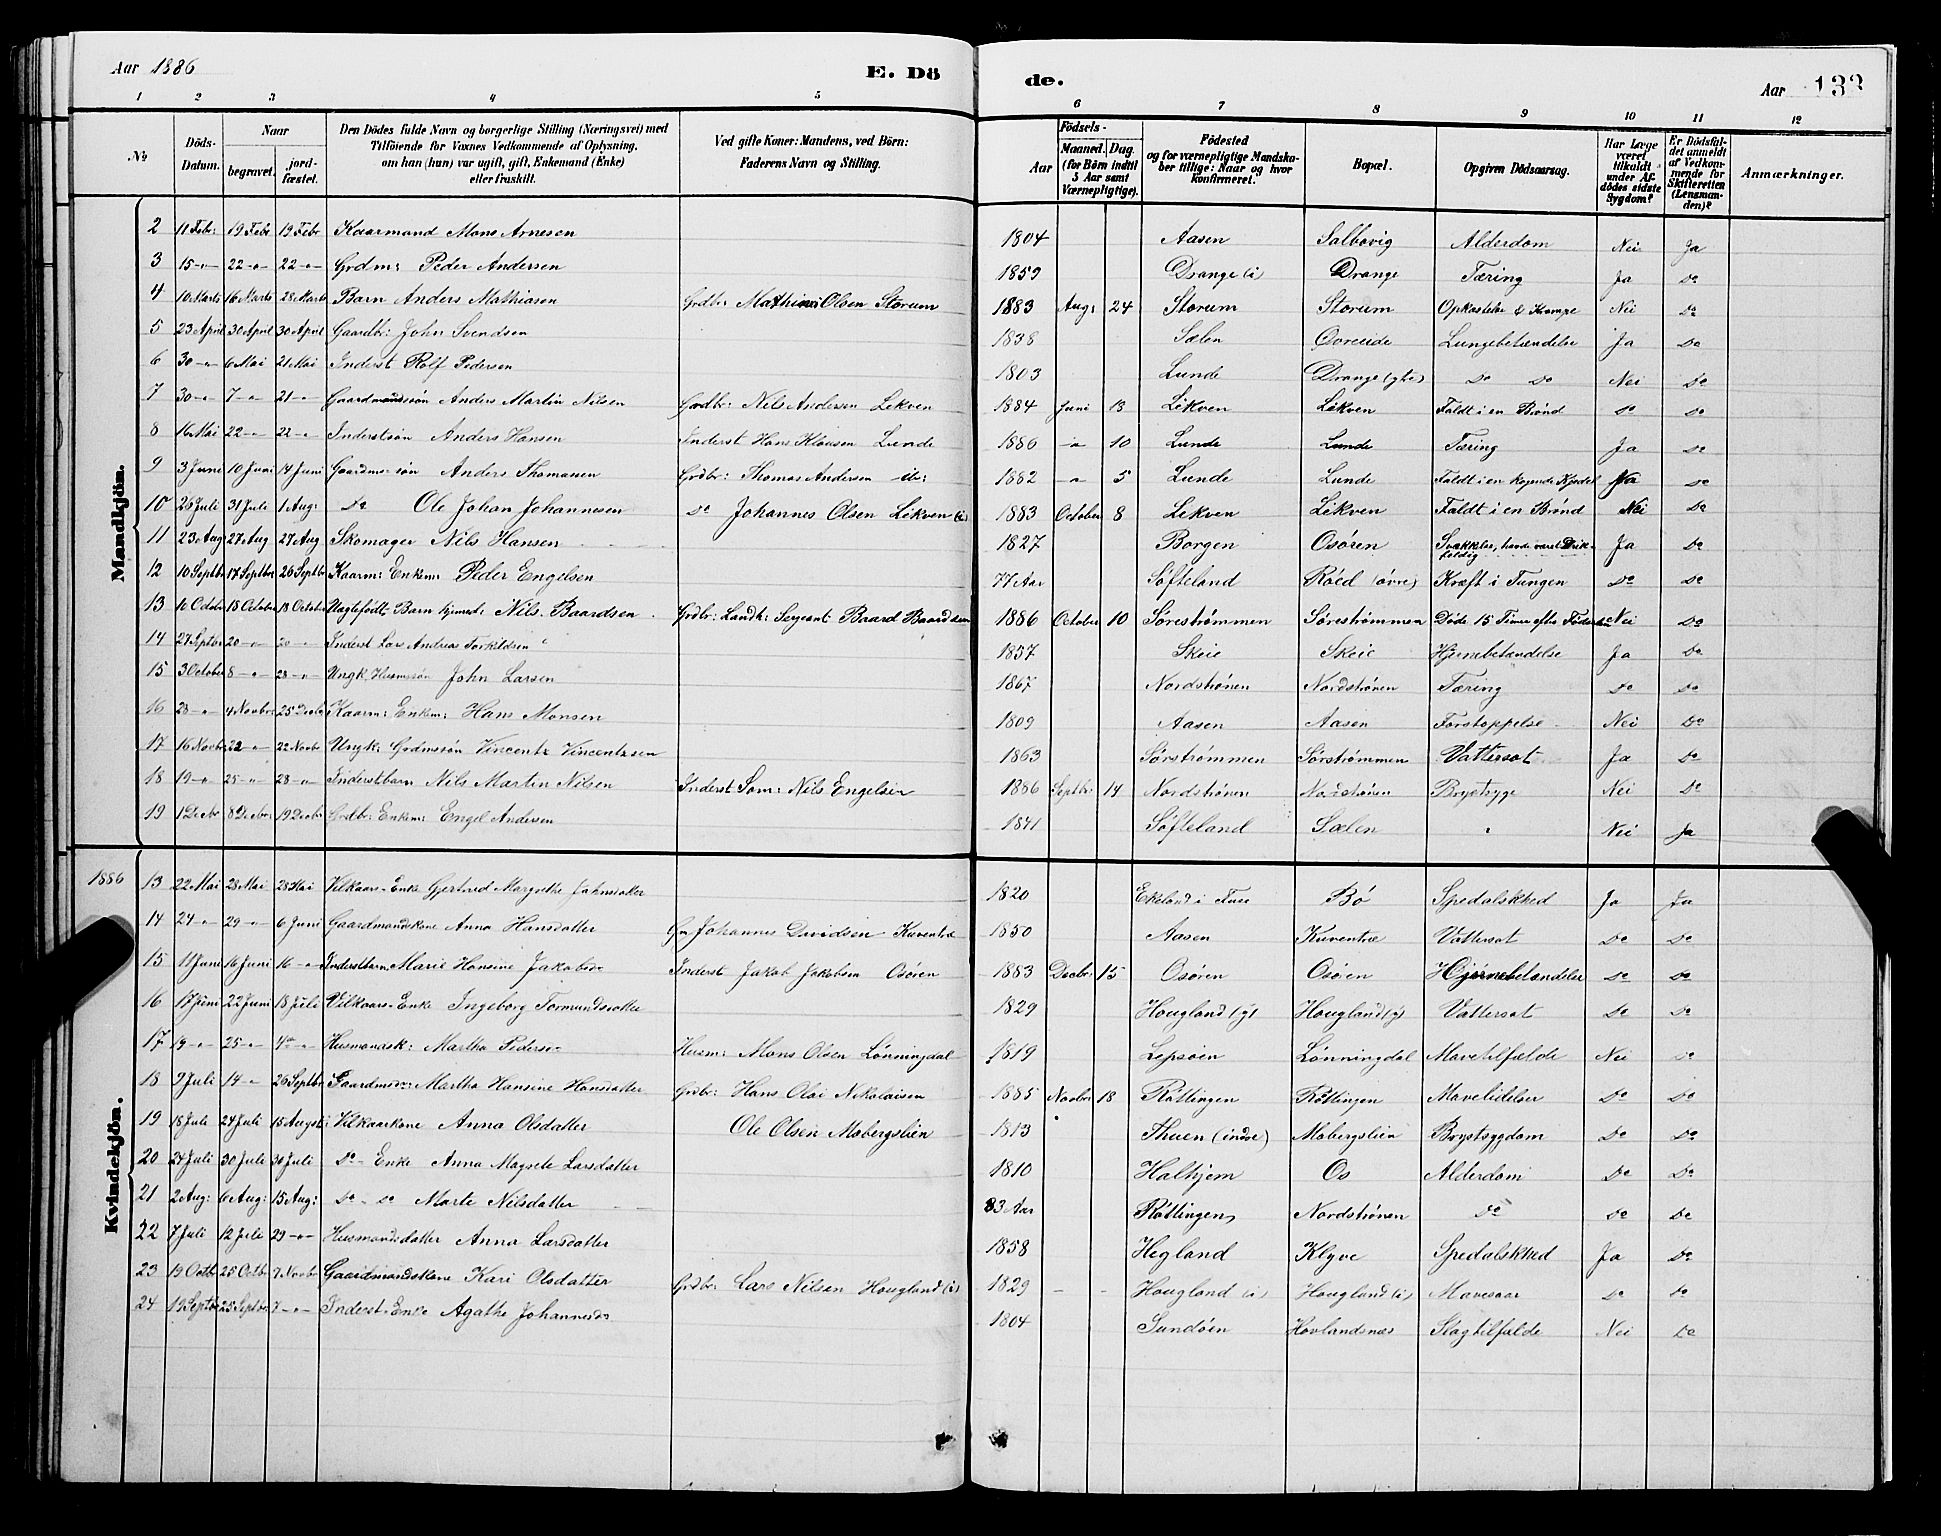 Aar 1886
E. Dö
de.
Aar 133
1 2 3 4 5 6 7 8 9 10 11 12
No
Döds-Datum.
Naar
begravet.
jord-fæstet.
Den Dödes fulde Navn og borgerlige Stilling (Næringsvei) med
Tilföiende for Voxnes Vedkommende af Oplysning,
om han (hun) var ugift, gift, Enkemand (Enke)
eller fraskilt.
Ved gifte Koner: Mandens, ved Börn:
Faderens Navn og Stilling.
Födsels-
Aar
Maaned. Dag.
(for Börn indtil
5 Aar samt
Værnepligtige).
Födested
og for værnepligtige Mandska-
ber tillige: Naar og hvor
konfirmeret.
Bopæl.
Opgiven Dödsaarsag.
Har Læge
været
tilkaldt
under Af-
dödes sidste
Sygdom?
Er Dödsfal-
det anmeldt
af Vedkom-
mende for
Skifteretten
(Lensman-
den)?
Anmærkninger.
Mandkjön.
2 11 Febr: 19 Febr 19 Febr Kaarmand Mons Arnesen 1804 Aasen Salbovig Alderdom Nei Ja
3 15 -"- 22 -"- 22 -"- Grdm: Peder Andersen 1859 Drange (i) Drange Tæring Ja Do
4 10 Marts 16 Marts 28 Marts Barn Anders Mathiasen Grdbr: Mathias Olsen Storum 1883 Aug: 24 Storum Storum Opkastelse & Krampe Nei Do
5 23 April 30 April 30 April Gaardbr: John Svendsen 1838 Sælen Øvreeide Lungebetændelse Ja Do
6 30 -"- 6 Mai 21 Mai Inderst Rolf Pedersen 1803 Lunde Drange (ytre) Do Do Nei Do
7 30 -"- 7 -"- 21 -"- Gaardmandssøn Anders Martin Nilsen Grdbr: Nils Andersen Lekven 1884 Juni 13 Lekven Lekven Faldt i en Brønd Do Do
8 16 Mai 22 -"- 22 -"- Inderstsøn Anders Hansen Inderst Hans Klausen Lunde 1880 -"- 10 Lunde Lunde Tæring Ja Do
9 3 Juni 10 Juni 14 Juni Gaardm: søn Anders Thomasen Grdbr: Thomas Andersen ib: 1882 -"- 5 Lunde Lunde Faldt i en kogende Kjedel Ja Do
10 26 Juli 31 Juli 1 Aug: Do Ole Johan Johannesen Do Johannes Olsen Lekven (i) 1883 October 8 Lekven Lekven Faldt i en Brønd Nei Do
11 23 Aug 27 Aug 27 Aug Skomager Nils Hansen 1827 Borgen Osøren Svækkelse, havde været Drikfeldig Ja Do
12 10 Septbr 17 Septbr 26 Septbr Kaarm: Enkem: Peder Engelsen 77 Aar Søfteland Røed (øvre) Kræft i Tungen Do Do
13 10 Octobr 18 October 18 October Uægtefødt Barn hjemed: Nils Baardsen Grdbr: Landh: Sergeant Baard Baardsen 1886 October 10 Sørestrømmen Sørestrømmen Døde 15 Timer efter Fødselen Nei Do
14 27 Septbr 20 -"- 20 -"- Inderst Lars Andreas Torkildsen 1857 Skeie Skeie Hjernebetændelse Ja Do
15 3 October 8 -"- 28 -"- Ungk. Husmssøn John Larsen 1867 Nordstrønen Nordstrønen Tæring Do Do
16 28 -"- 4 Novbr: 25 Decbr Kaarm: Enkem: Hans Monsen 1809 Aasen Aasen Forstoppelse Nei Do
17 16 Novbr 22 -"- 22 Novbr Ungk: Grdmssøn Vincentz Vincentzsen 1863 Sørstrømmen Sørstrømmen Vattersot Ja Do
18 19 -"- 25 -"- 28 -"- Inderstbarn Nils Martin Nilsen Inderst Søm: Nils Engelsen 1886 Septbr 14 Nordstrønen Nordstrønen Brystsyge Nei Do
19 1 Decbr 8 Decbr: 19 Decbr Grdbr: Enkem: Engel Andersen 1841 Søfteland Sælen " Nei Ja
Kvindekjön.
1886 13 22 Mai 28 Mai 28 Mai Vilkaars-Enke Gjertrud Margrethe Johnsdatter 1820 Ekeland i Fuse Bø Spedalskhed Ja Ja
14 24 -"- 29 -"- 6 Juni Gaardmandskone Anna Hansdatter Gm Johannes Davidsen Kuventræ 1850 Aasen Kuventræ Vattersot Do Do
15 11 Juni 16 Juni 16 -"- Inderstbarn Marie Hansine Jakobsdr Inderst Jakob Jakobsen Osøren 1883 Decbr 15 Osøren Osøren Hjernebetændelse Do Do
16 17 Juni 22 Juni 18 Juli Vilkaars-Enke Ingeborg Tormundsdatter 1829 Hougland (y) Hougland (y) Vattersot Do Do
17 19 -"- 25 -"- 4 -"- Husmandsk: Martha Pedersdr Husm: Mons Olsen Lønningdal 1819 Lepsøen Lønningdal Mavetilfælde Nei Do
18 9 Juli 14 -"- 26 Septbr Gaardmsdr: Martha Hansine Hansdatter Grdbr: Hans Olai Nikolaisen 1885 Novbr 18 Røttingen Røttingen Mavelidelser Do Do
19 18 Juli 24 Juli 15 August: Vilkaarkone Anna Olsdatter Ole Olsen Mobergslien 1813 Thuen (indre) Mobergslien Brystsygdom Do Do
20 24 Juli 30 Juli 30 Juli Do - Enke Anna Magrete Larsdatter 1810 Halhjem Os Alderdom Do Do
21 2 Aug: 6 Aug: 15 Aug: Do - Do Marte Nilsdatter 83 Aar Røttingen Nordstrønen Do Do Do
22 7 Juli 12 Juli 29 -"- Husmandsdatter Anna Larsdatter 1858 Hegland Klyve Spedalskhed Ja Do
23 19 Octbr 25 Octbr 7 Novbr Gaardmandskone Kari Olsdatter Grdbr: Lars Nilsen Hougland (i) 1829 - - Hougland (i) Hougland (i) Mavesaar Do Do
24 19 Septbr 25 Septbr 7 -"- Inderst-Enke Agathe Johannesdr 1804 Sundøen Hovlandsnæs Slagtilfælde Nei Do